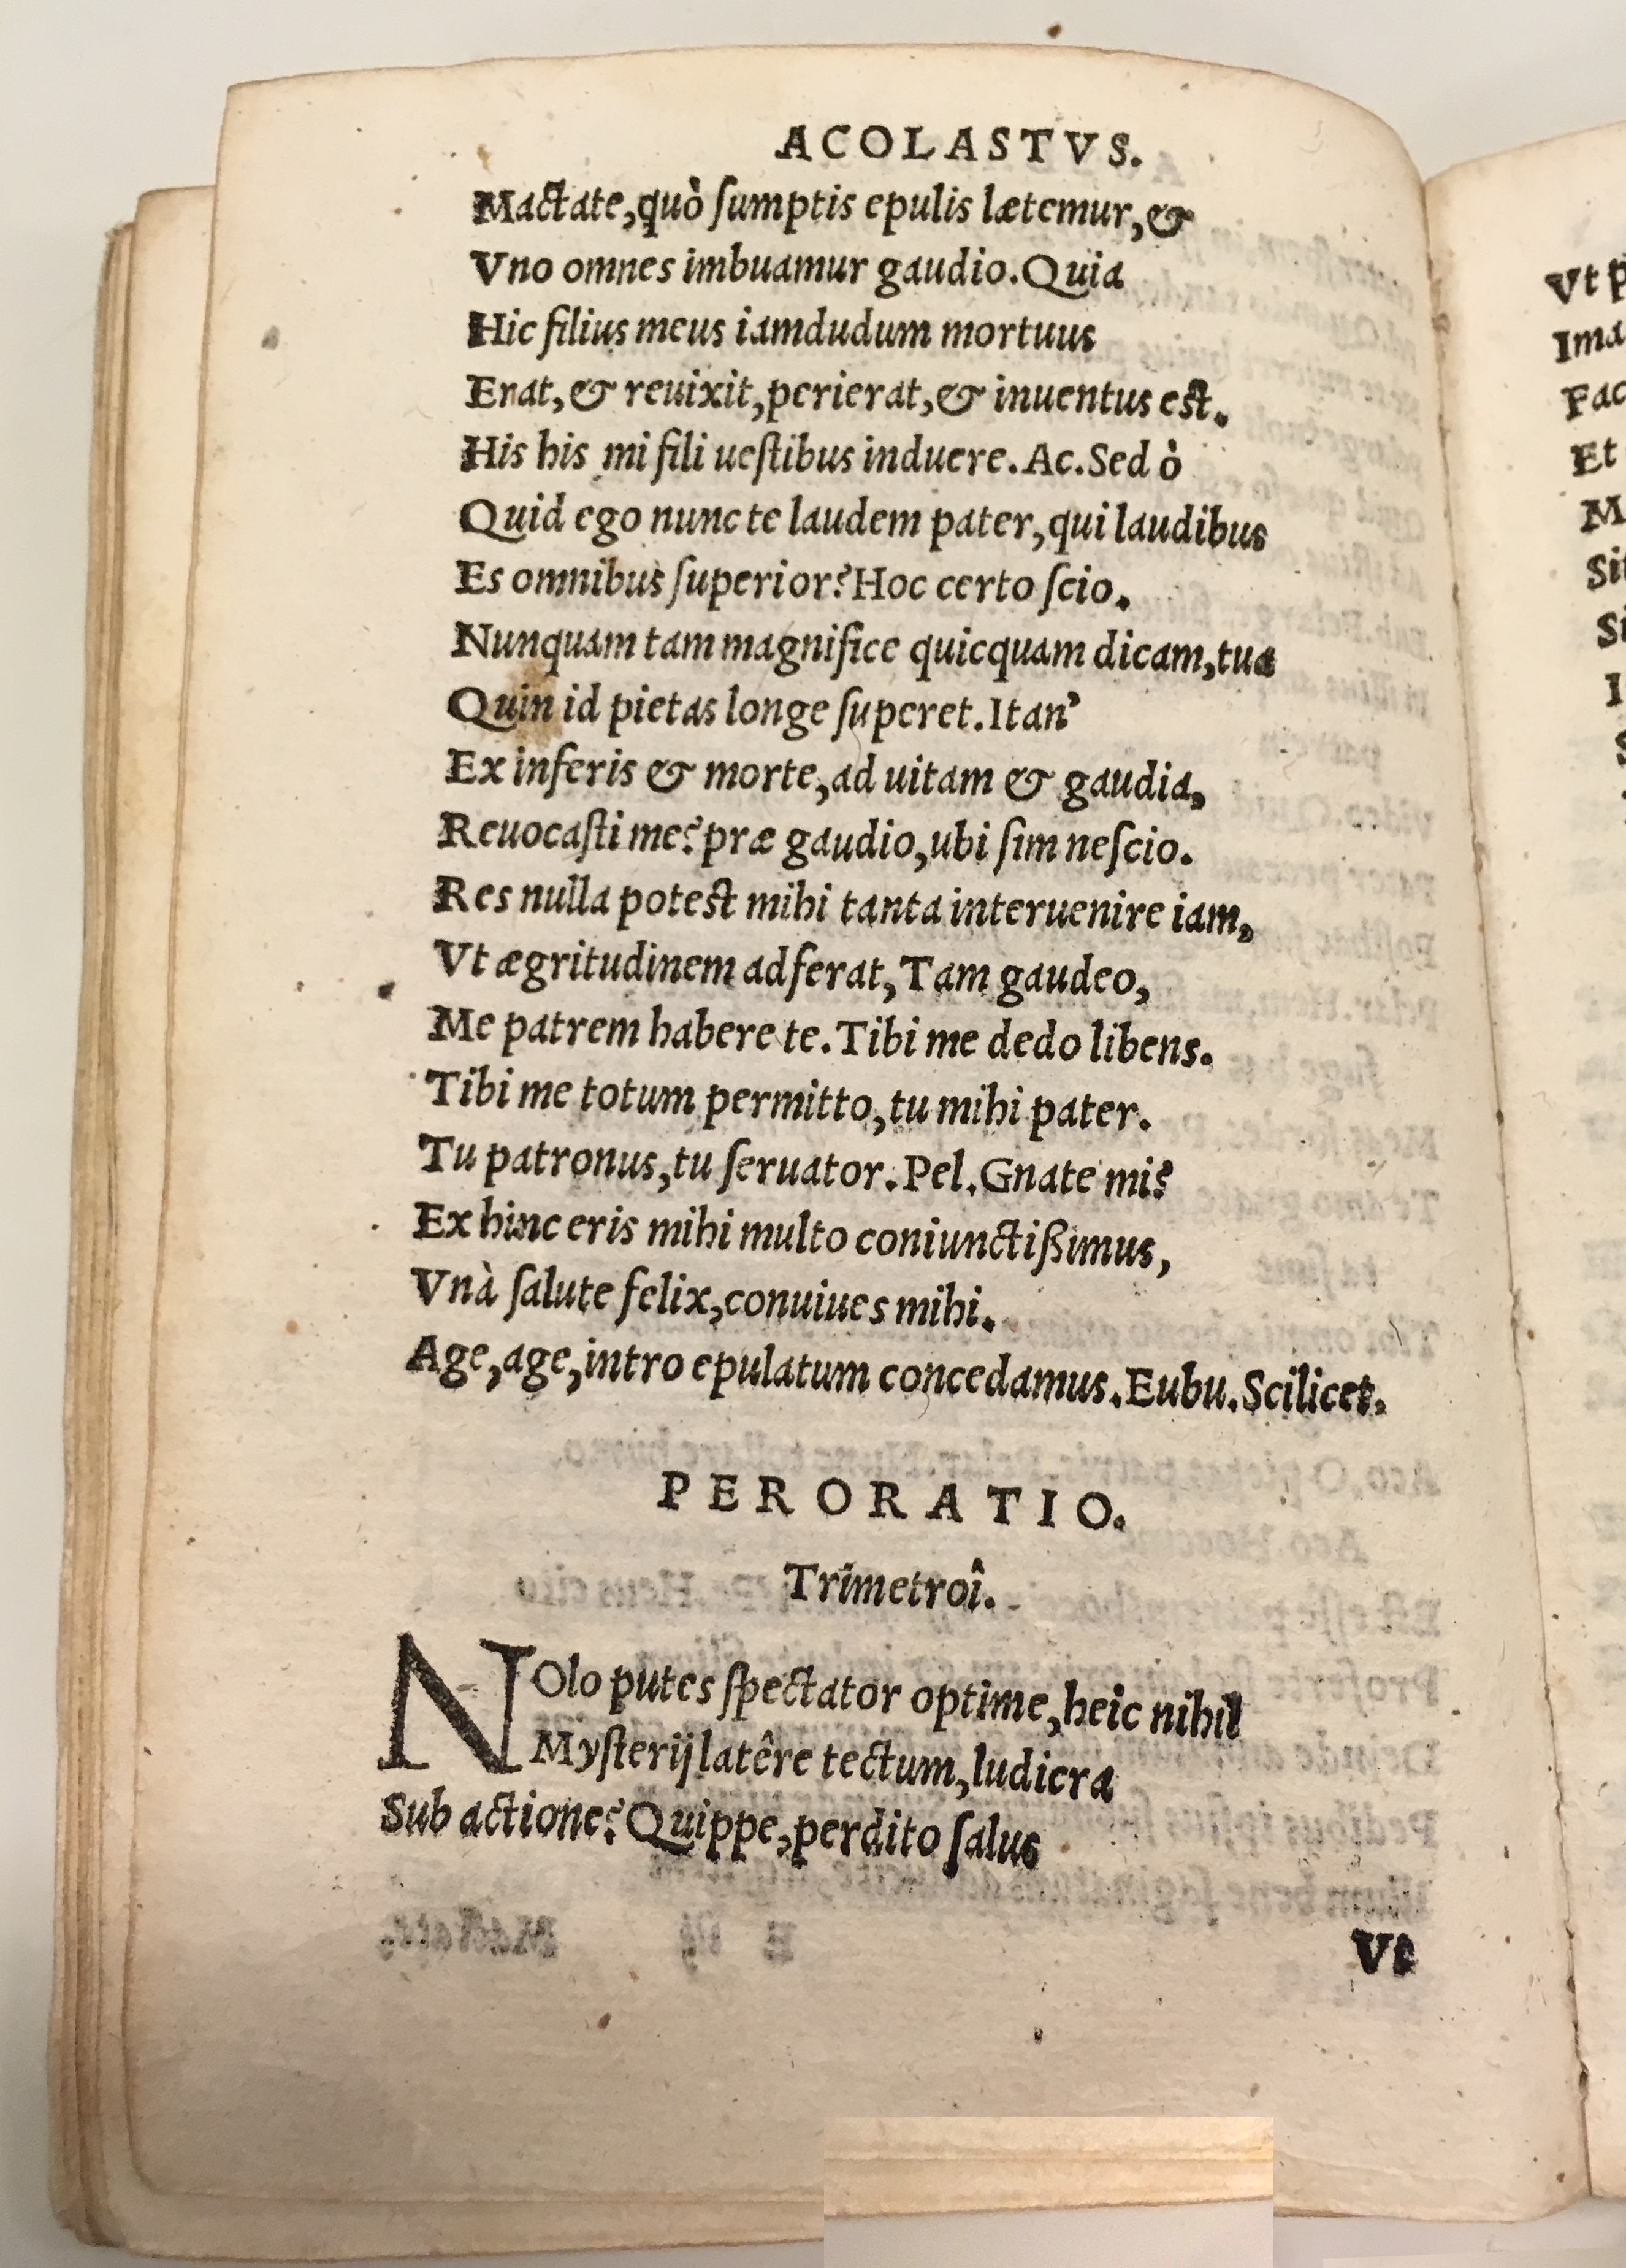 ACOLASTVS.
Mactate,quò ſumptis epulis lætemur,&
Vno omnes imbuamur gaudio.Quia
Hic filius meus iamdudum mortuus
Erat,& reuixit,perierat,& inuentus est.
His his mi fili ueſtibus induere.Ac.Sed ò
Quid ego nunc te laudem pater,qui laudibus
Es omnibus ſuperior?Hoc certo ſcio.
Nunquam tam magnifice quicquam dicam,tua
Quin id pietas longe ſuperet.Itan'
Ex inferis & morte,ad uitam & gaudia,
Reuocaſti me?præ gaudio,ubi ſim neſcio.
Res nulla potest mihi tanta interuenire iam,
Vt ægritudinem adferat,Tam gaudeo,
Me patrem habere te.Tibi me dedo libens.
Tibi me totum permitto,tu mihi pater.
Tu patronus,tu ſeruator.Pel.Gnate mi?
Ex hinc eris mihi multo coniunctißimus,
Vnà ſalute felix,conuiues mihi.
Age,age,intro epulatum concedamus.Eubu.Scilicet.
PERORATIO.
Trimetroî.
NOlo putes ſpectator optime,heic nihil
Myſterij latêre tectum,ludicra
Sub actione?Quippe,perdito ſalus
Vt
Vt p
Ima
Fac
Et
M
Sit
Si
I
S